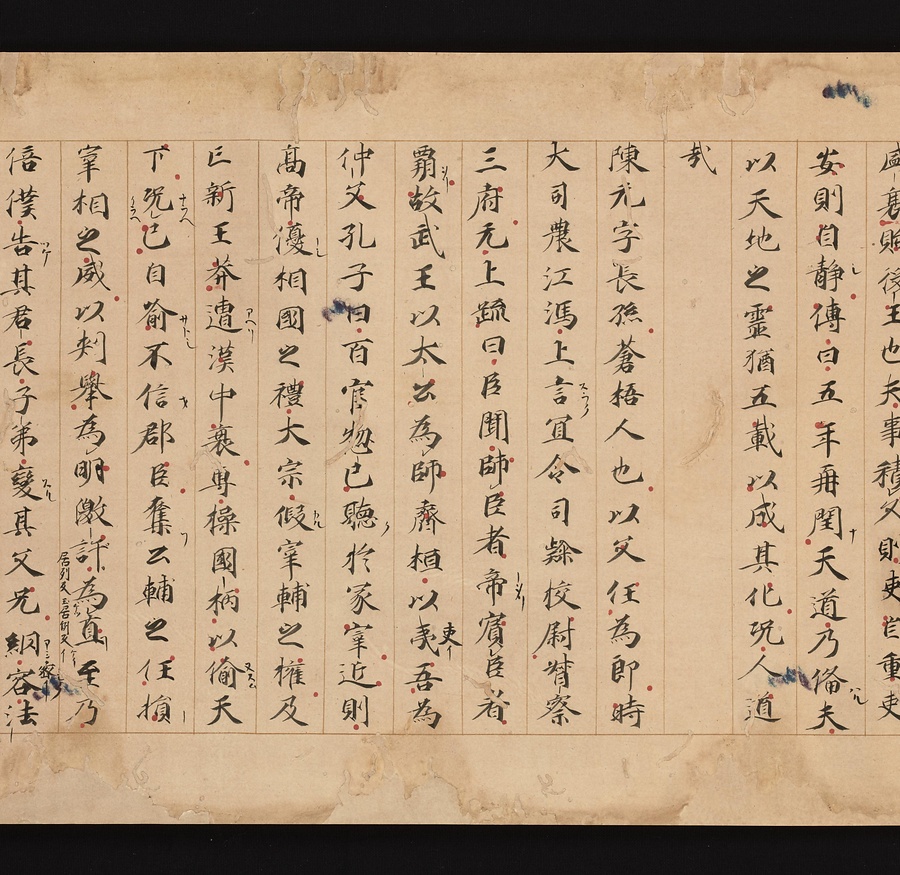 盛衰貽後王也夫事積久則吏自重吏
安則自静傳曰五年再閏天道乃俻夫
以天地之靈猶五載以成其化況人道
哉
陳元字長孫蒼梧人也以父任為郎時
大司農江馮上言宜令司隸校尉督察
三府元上疏曰臣聞師臣者帝賓臣者
霸故武王以太公為師齊桓以夷吾為
仲父孔子曰百官惣已聽於冢宰近則
高帝優相國之禮大宗假宰輔之權及
亡新王莽遭漢中衰専操國柄以偷天
下況已自喻不信郡臣奪公輔之任損
宰相之威以刾舉為明徼訐為直至乃
倍僕告其君長子弟變其父兄網容法